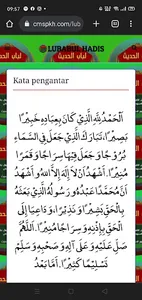 09:57
cmspkh.com/lub
LUBABUL HADIS
لباب الحديث
Kata pengantar
اَلْحَمْدُ لِلّٰهِ الَّذِيْ كَانَ بِعِبَادِهِ خَبِيْرًا
بَصِيْرًا، تَبَارَكَ الَّذِيْ جَعَلَ فِي السَّمَاءِ
بُرُوْجًا وَجَعَلَ فِيْهَا سِرَاجًا وَقَمَرًا
مُنِيْرًا. أَشْهَدُ اَنْ لَا إِلٰهَ إِلَّا اللهُ وَأَشْهَدُ
اَنَّ مُحَمَّدًا عَبْدُهُ وَرَسُوْلُهُ الَّذِيْ بَعَثَهُ
بِالْحَقِّ بَشِيْرًا وَنَذِيْرًا، وَدَاعِيًا إِلَى
الْحَقِّ بِإِذْنِهِ وَسِرَاجًا مُنِيْرًا. اَللّٰهُمَّ
صَلِّ عَلَيْهِ وَعَلَى آلِهِ وَصَحْبِهِ وَسَلِّمْ
تَسْلِيْمًا كَثِيْرًا. أَمَّا بَعْدُ